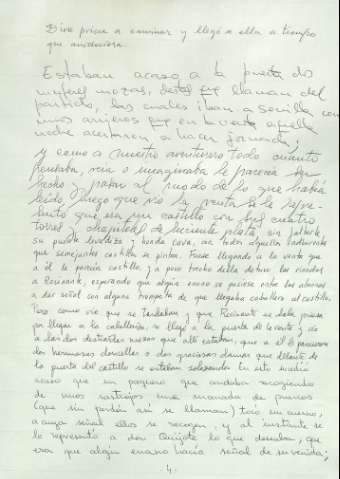 Diose priesa a caminar y llegó a ella a tiempo
que anochecía.
Estaban acaso a la puerta dos
mujeres mozas, destas que llaman del
partido, las cuales iban a Sevilla con
unos arrieros que en la venta aquella
noche acertaron a hacer jornada;
y como a nuestro aventurero todo cuanto
pensaba, veía o imaginaba le parecía ser
hecho y pasar al modo de lo que había
leído, luego que vio la venta se le repre-
sentó que era un castillo con sus cuatro
torres y chapiteles de luciente plata, sin faltarle
su puente levadizo y honda cava, con todos aquellos adherentes
que semejantes castillos se pintan. Fuese llegando a la venta que
a él le parecía castillo, y a poco trecho della detuvo las riendas
a Rocinante, esperando que algún enano se pusiese entre las almenas
a dar señal con alguna trompeta de que llegaba caballero al castillo.
Pero como vio que se tardaban y que Rocinante se daba priesa
por llegar a la caballeriza, se llegó a la puerta de la venta y vio
a las dos destraídas mozas que allí estaban, que a él le parecieron
dos hermosas doncellas o dos graciosas damas que delante de
la puerta del castillo se estaban solazando. En esto sucedió
acaso que un porquero que andaba recogiendo
de unos rastrojos una manada de puercos
(que sin perdón así se llaman) tocó un cuerno,
a cuya señal ellos se recogen, y al instante se
le representó a don Quijote lo que deseaba, que
era que algún enano hacía señal de su venida;
4.